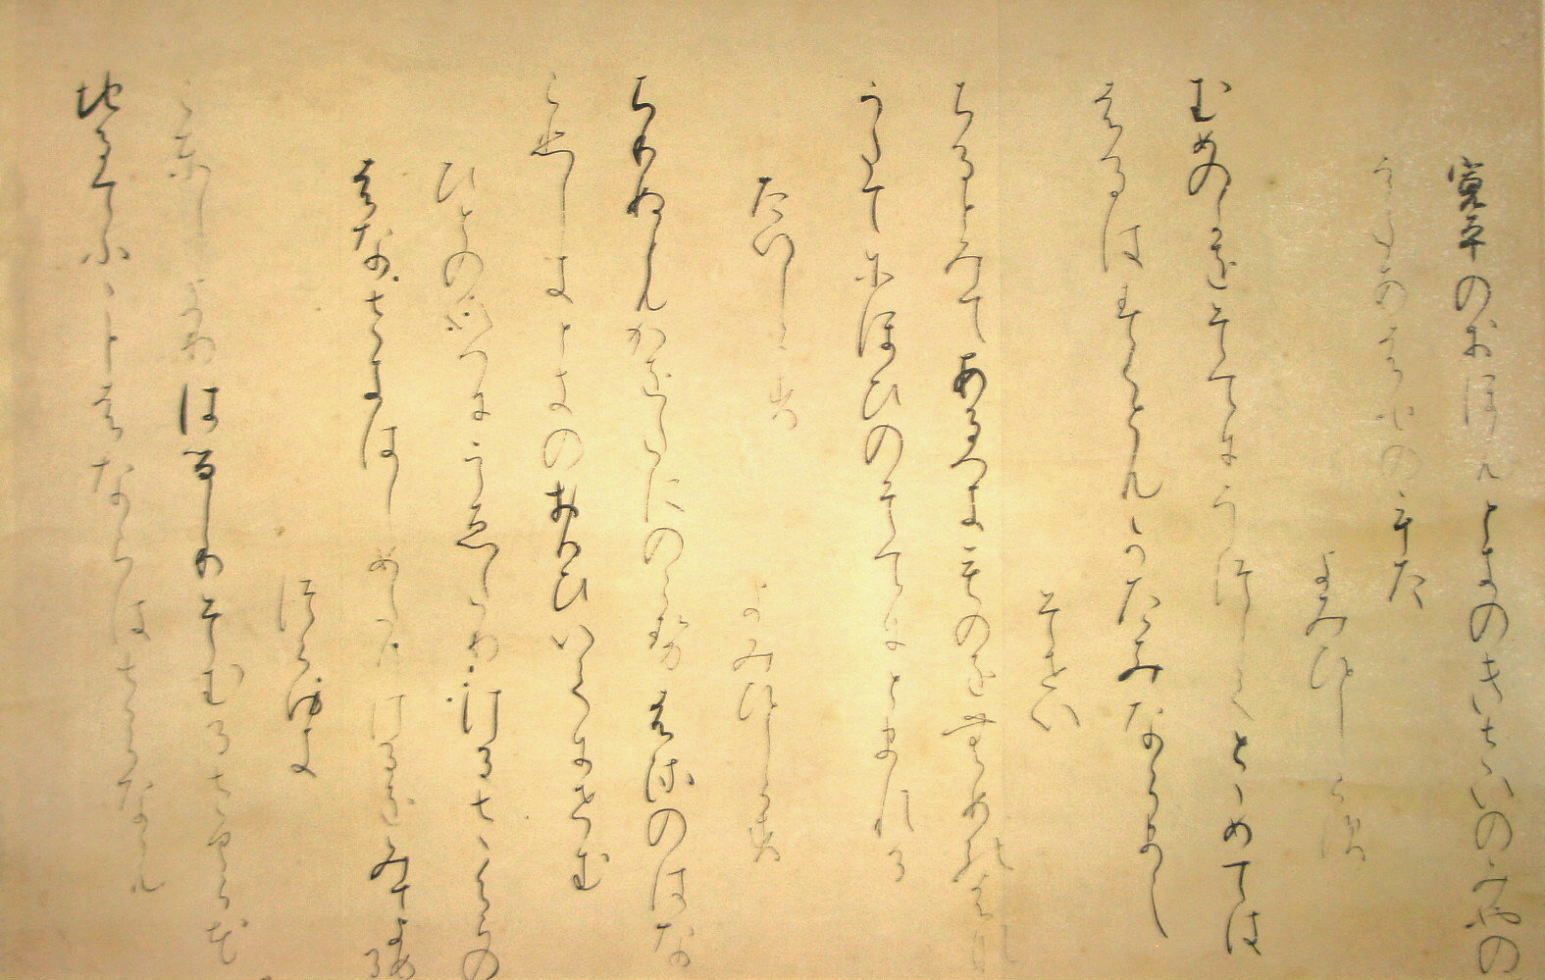 寛平のおほんときのきさいのみやの
うたあはせのうた
よみひとしらす
むめのかをそてにうつしてとゝめては
はるはすくともかたみならまし
そせい
ちるとみてあるへきものをむめのはな
うたてにほひのそてにとまれる
たいしらす
よみひとしらす
ちりぬともかをたにのこせむめのはな
こひしきときのおもひいてにせむ
ひとのいへにうゑたりけるさくらの
はなさきはしめたりけるをみてよめる
つらゆき
ことしよりはるしりそむるさくらはな
ちるといふことはならはさらなむ